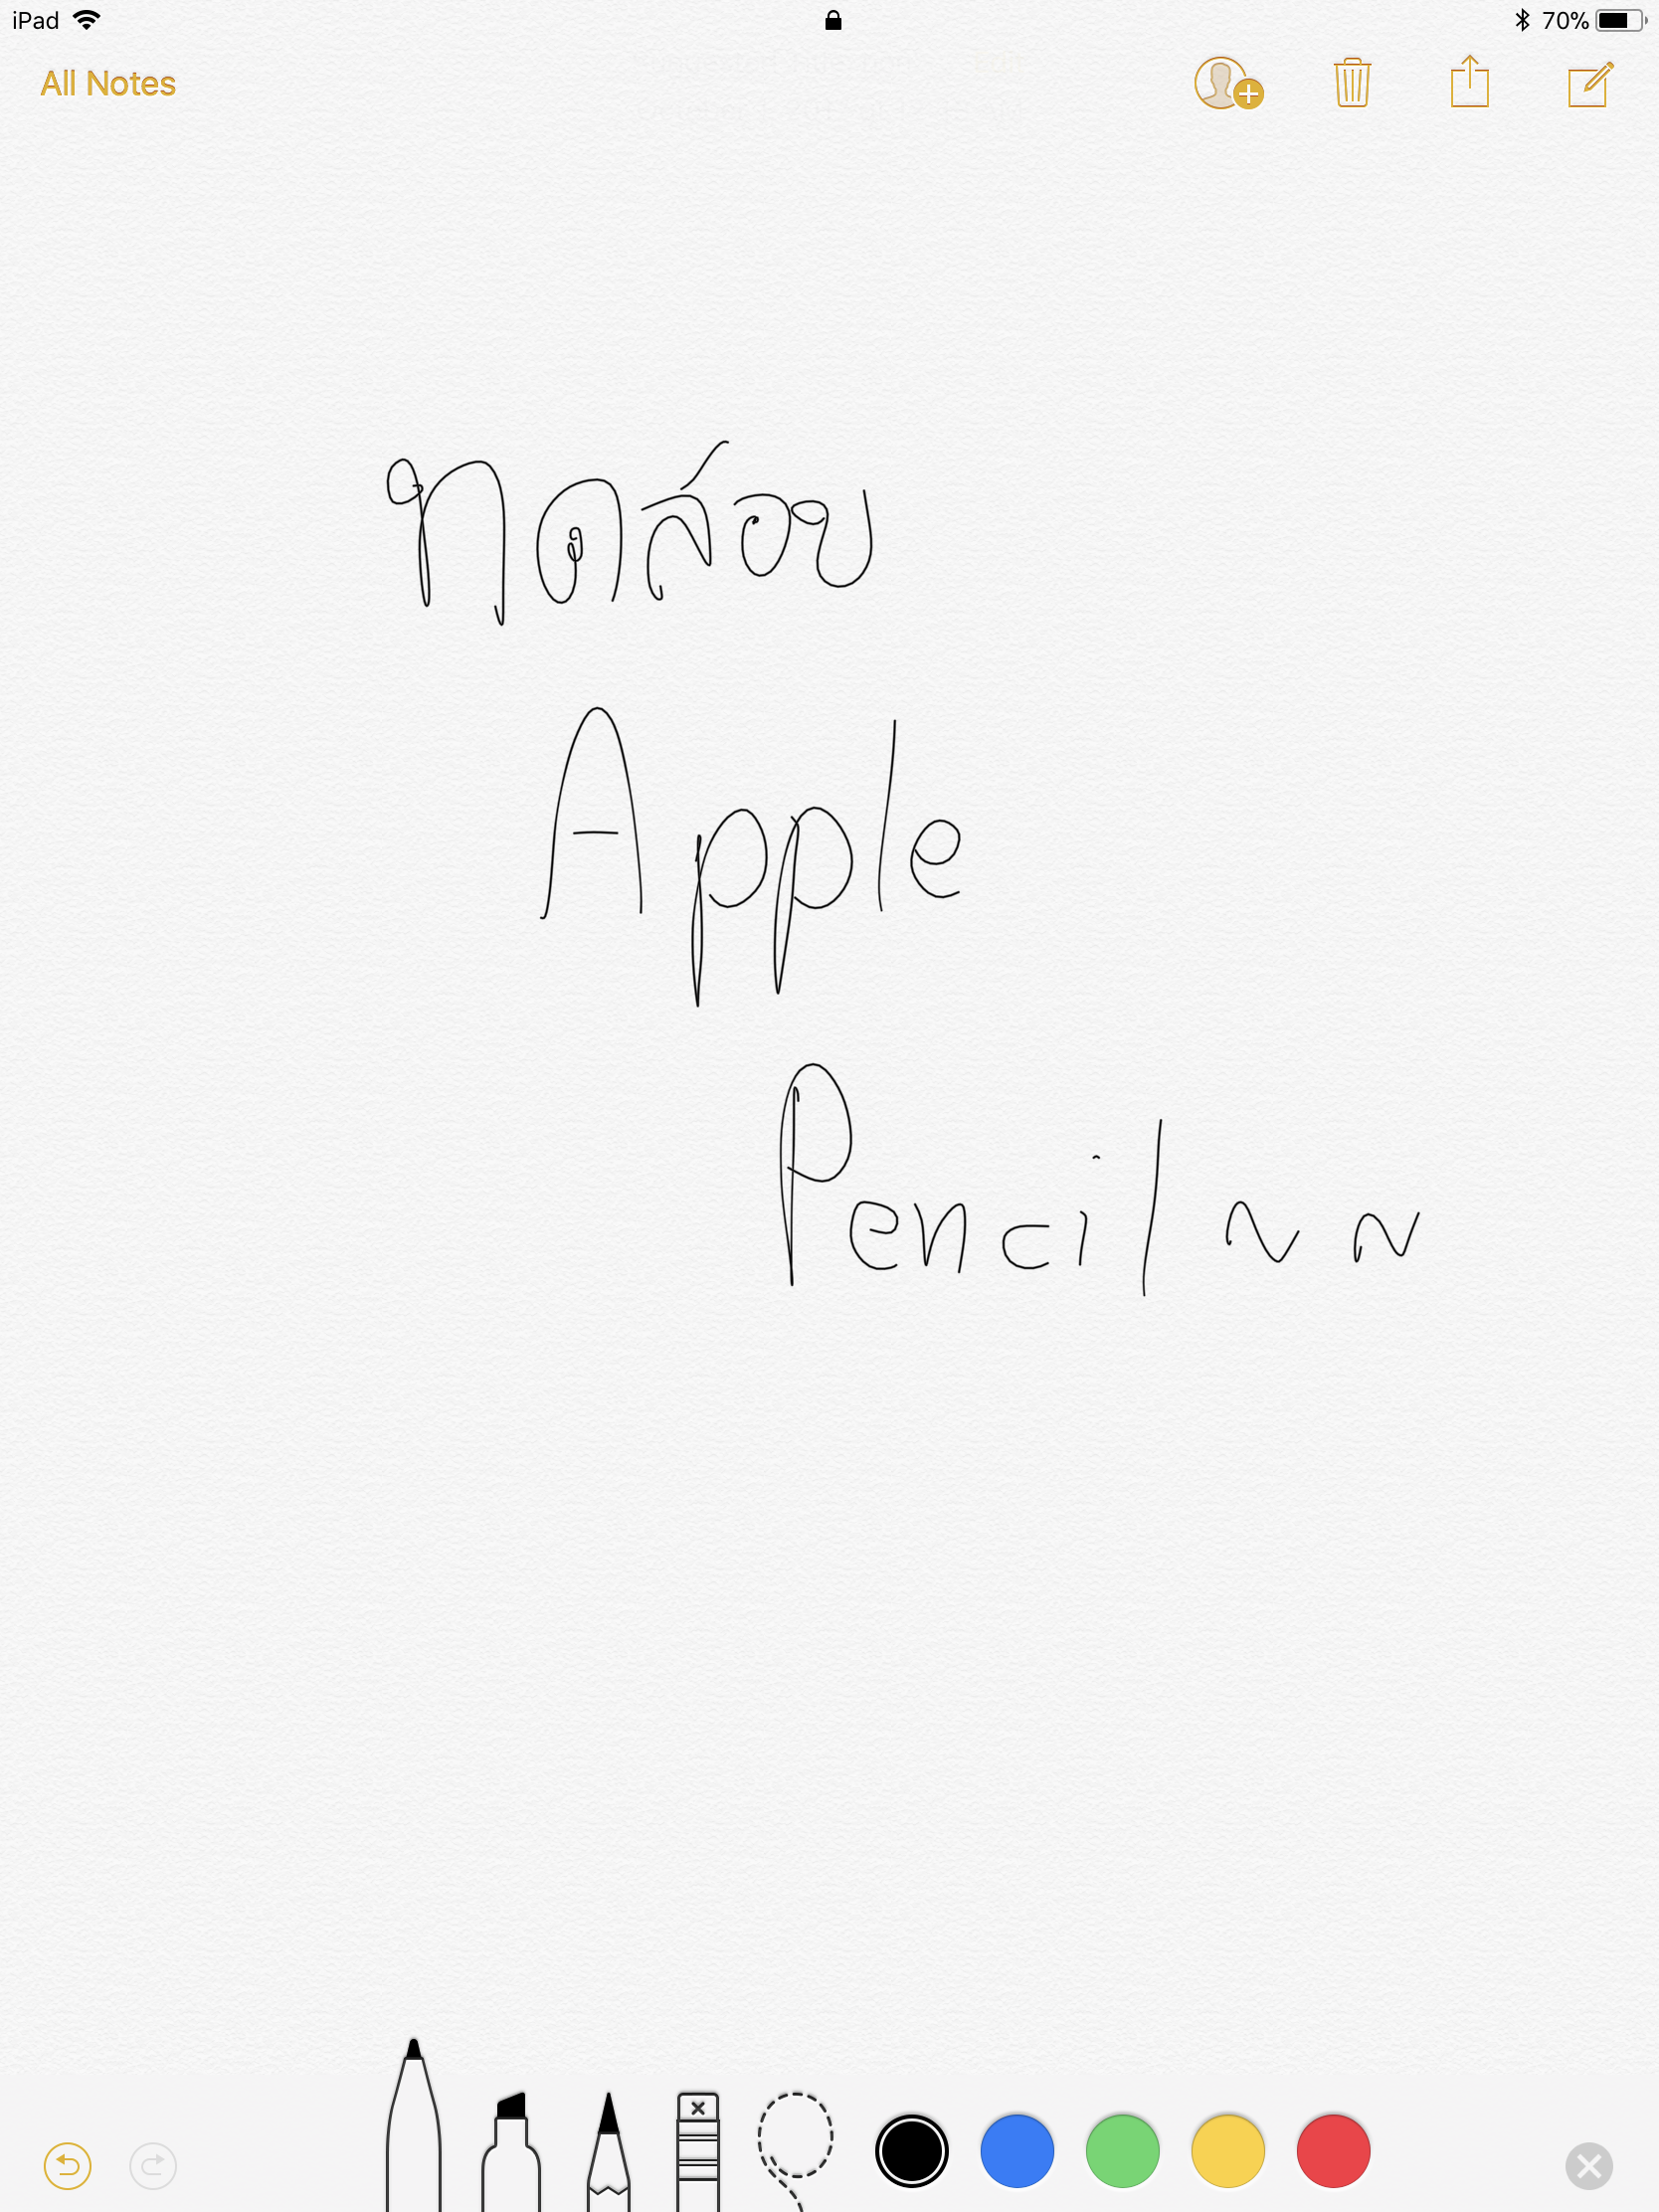 iPad 70%
All Notes
ทดสอบ
Apple
Pencil ~ ~